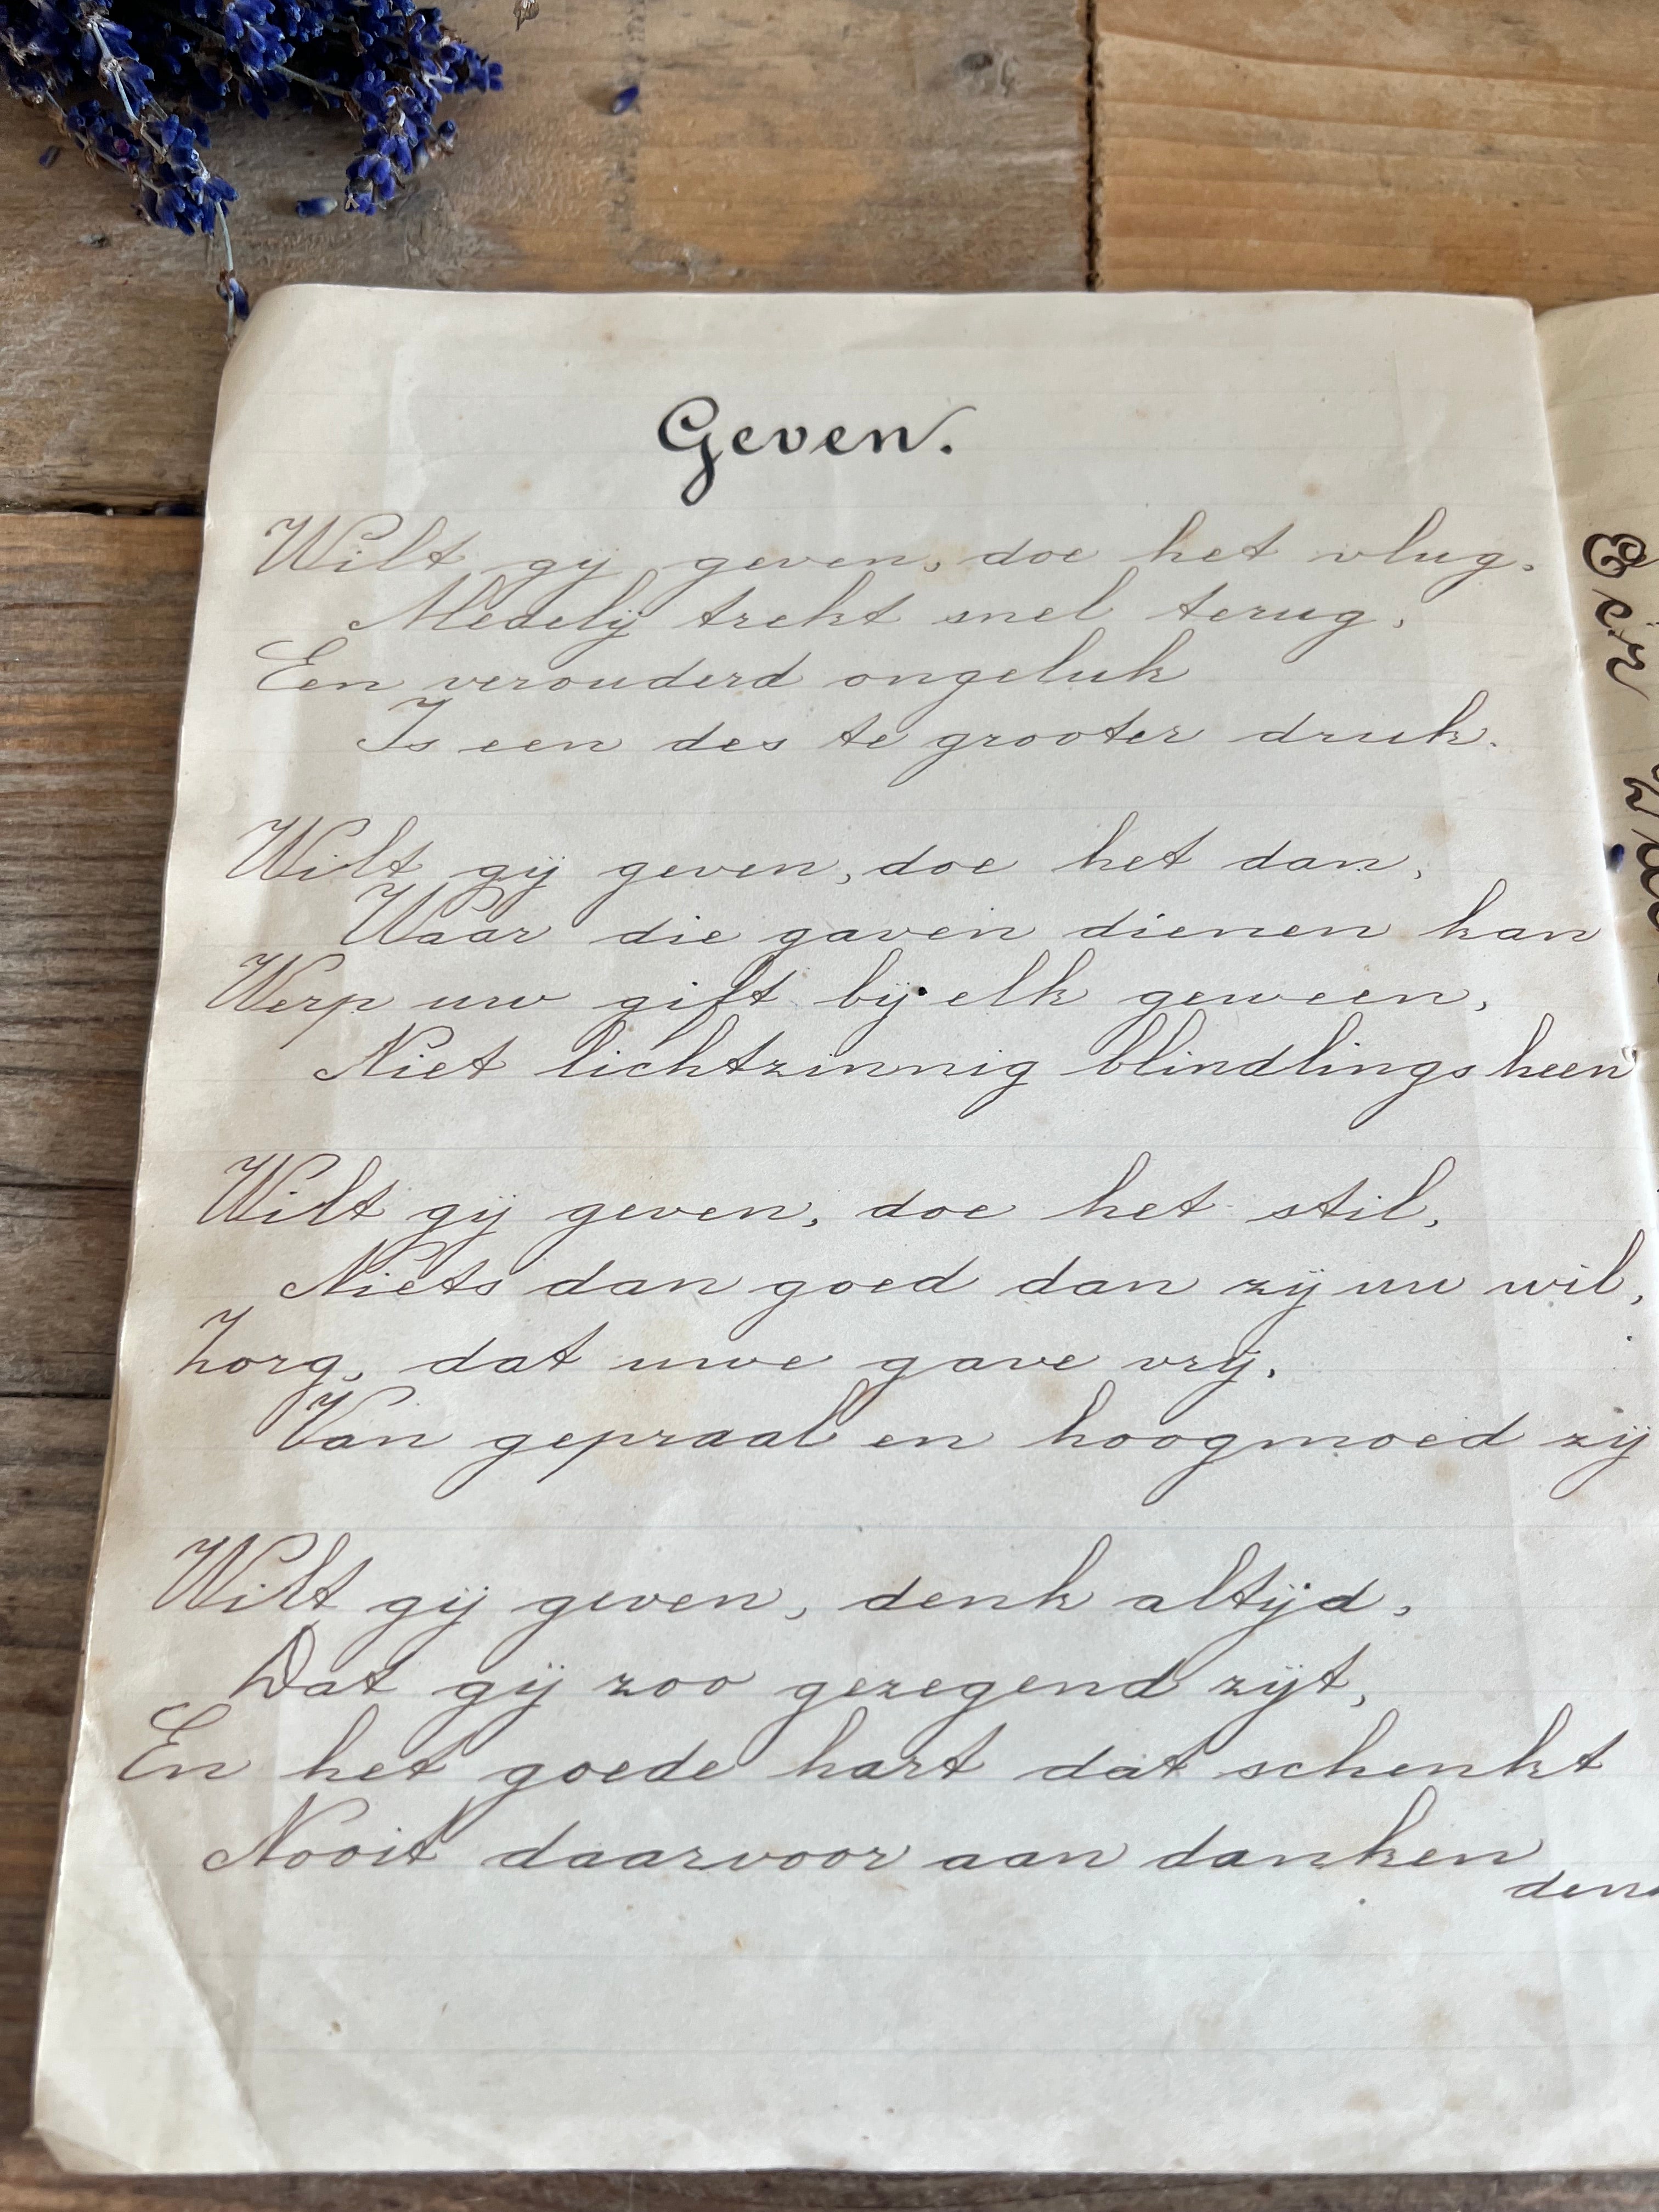 Geven.
Wilt gij geven, doe het vlug.
Medelij trekt snel terug,
Een verouderd ongeluk
Is een des te grooter druk.
Wilt gij geven, doe het dan,
Waar die gaven dienen kan
Werp uw gift bij elk geween,
Niet lichtzinnig blindlings heen
Wilt gij geven, doe het stil,
Niets dan goed dan zij uw wil,
Zorg, dat uwe gave vrij,
Van gepraal en hoogmoed zij
Wilt gij geven, denk altijd,
Dat gij zoo gezegend zijt,
En het goede hart dat schenkt
Nooit daarvoor aan danken